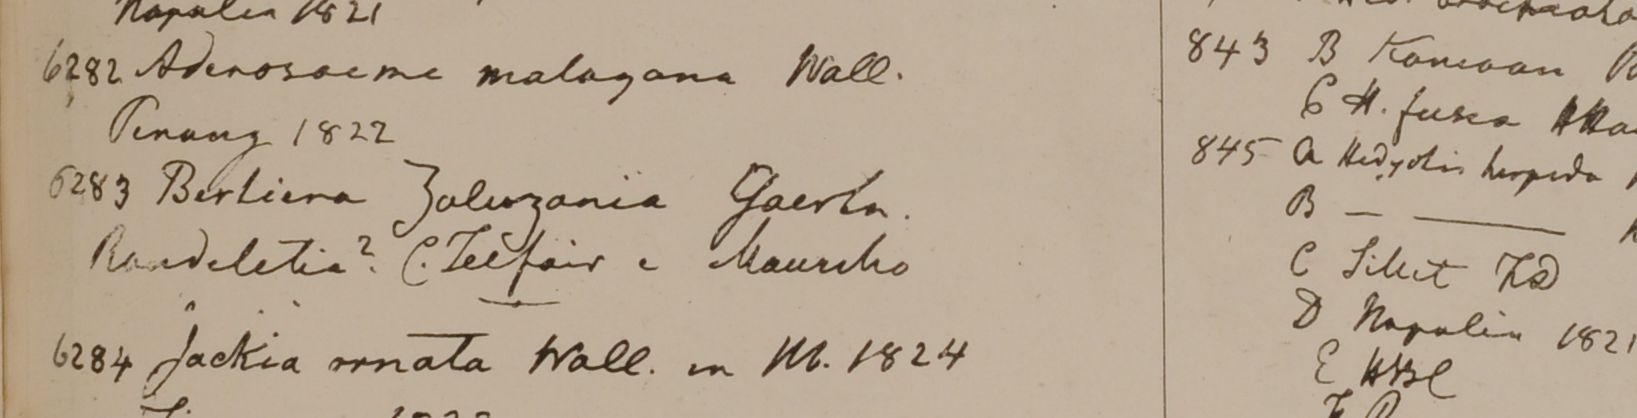 Napalia 1821
6282 Adenosacme malayana Wall.
Penang 1822
6283 Bertiera Zaluzania Gaertn.
Rondeletia? C. Telfair e Mauritio
6284 Jackia ornata Wall. in M. 1824
843 B Kamoan
C H. fusca
845 a Hedyotis hispida
B — ———
C Sillet
D Napalia 1821
E HBC